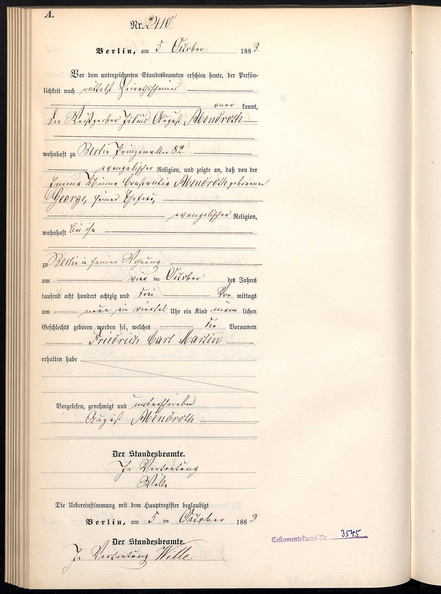 A.
Nr. 2410
Berlin, am 5 October 1883.
Vor dem unterzeichneten Standesbeamten erschien heute, der Persön-
lichkeit nach mittelst Heirathsscheines
aner kannt,
der August Abendroth
wohnhaft zu Berlin Prinzenallee 82
evangelischer Religion, und zeigte an, daß von der
Emma Abendroth geborenen
George, seiner Ehefrau,
evangelischer Religion,
wohnhaft bei ihm
zu Berlin in seiner Wohnung
am vier ten October des Jahres
tausend acht hundert achtzig und drei Vor mittags
um neun ein viertel Uhr ein Kind männ lichen
Geschlechts geboren worden sei, welches die Vornamen
Friedrich Carl Martin
erhalten habe
Vorgelesen, genehmigt und unterschrieben
August Abendroth
Der Standesbeamte.
In Vertretung
Wille
Die Uebereinstimmung mit dem Hauptregister beglaubigt
Berlin, am 5 ten October 1883
Der Standesbeamte.
In Vertretung Wille
Testamentskartei Nr. 3545